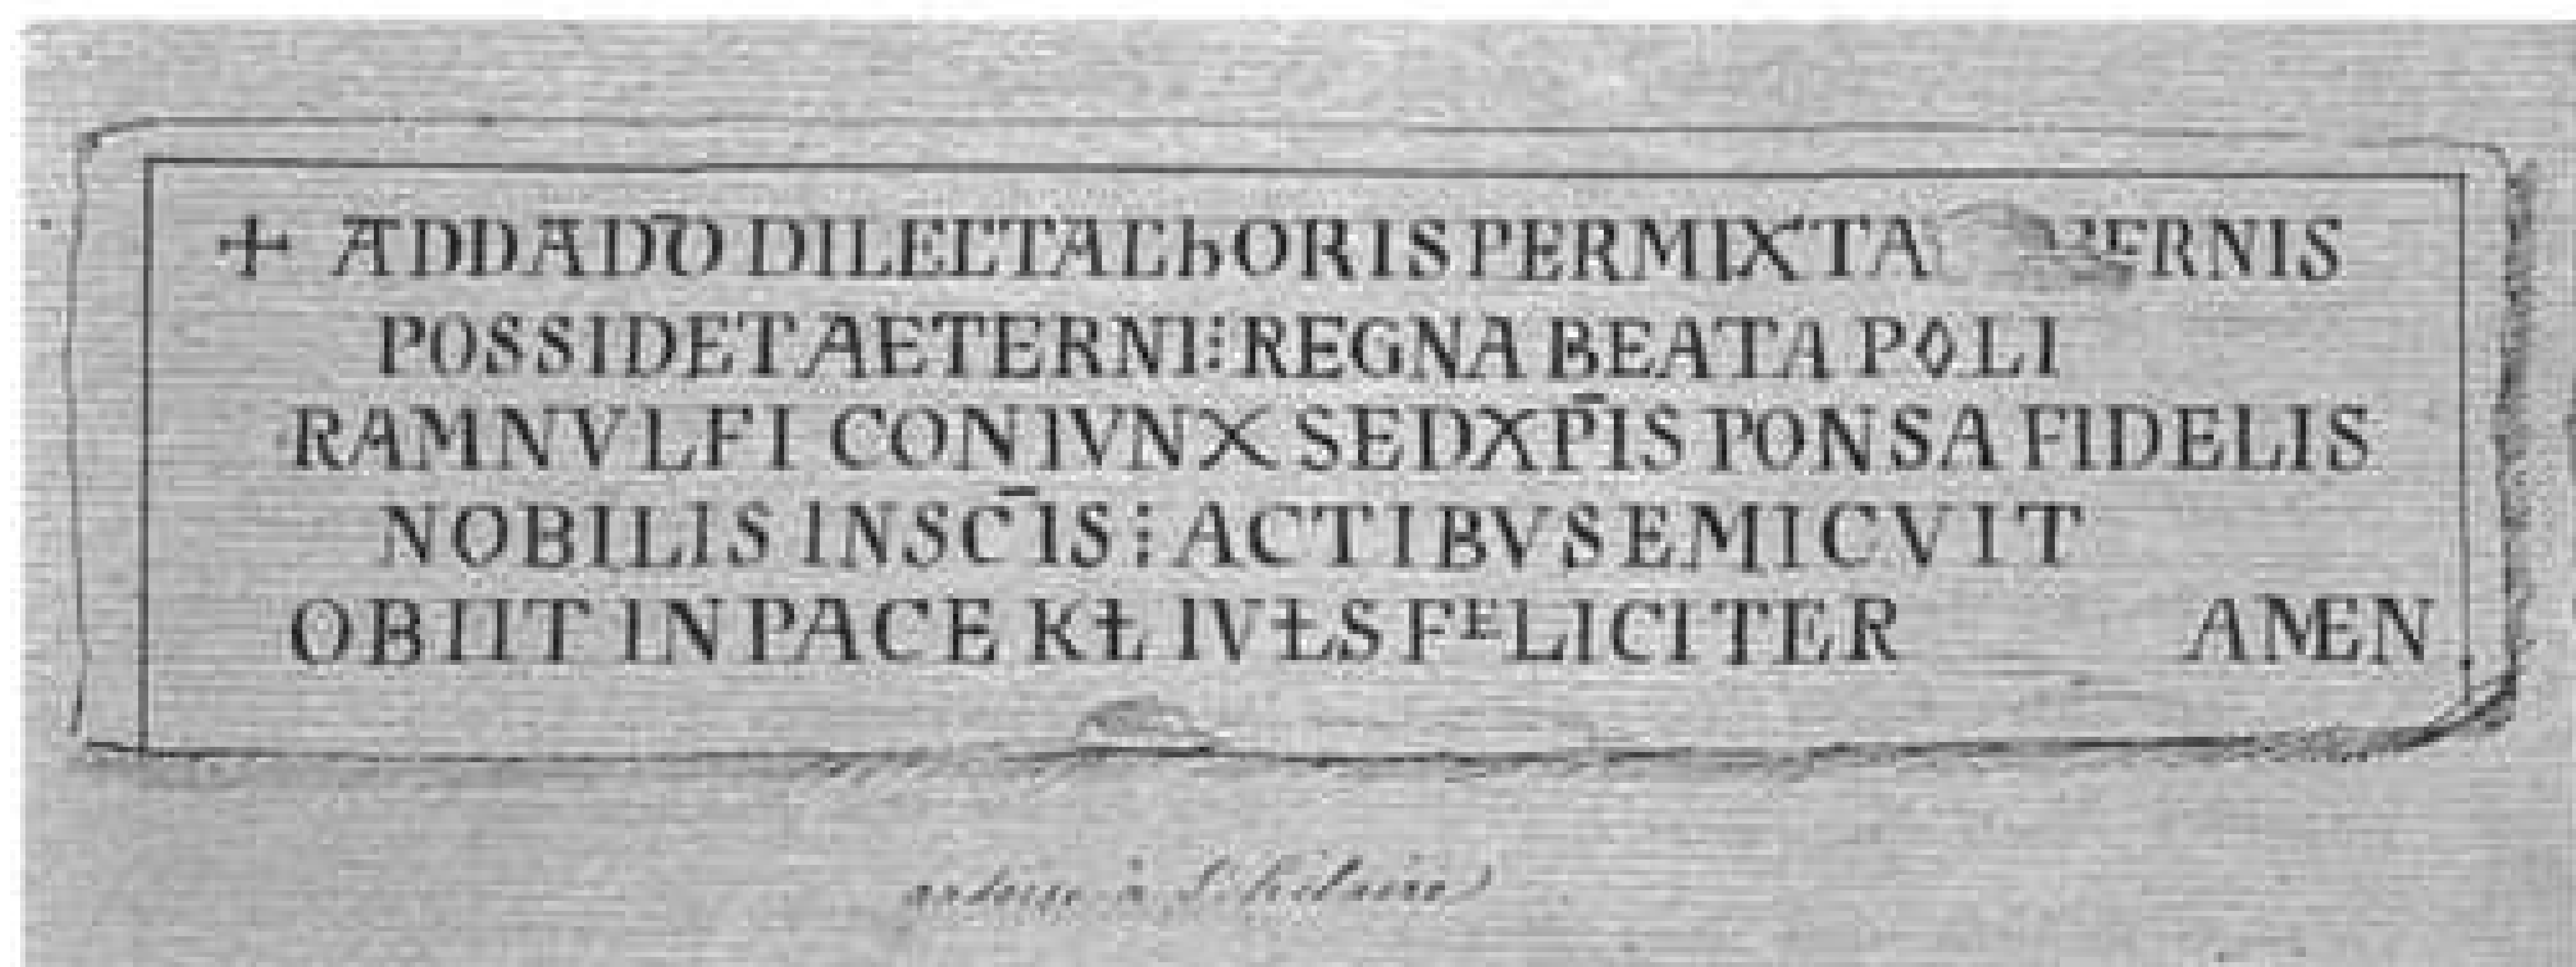 + ADDA DŌ DILECTA ChORIS PERMIXTA
POSSIDET AETERNI⁝ REGNA BEATA POLI
RAMNVLFI CONIVNX SED XP̄I SPONSA FIDELIS
NOBILIS IN SC̄IS⁝ ACTIBVS EMICVIT
OBIIT IN PACE KŁ IVŁS FELICITER AMEN
ardoise à St hilaire